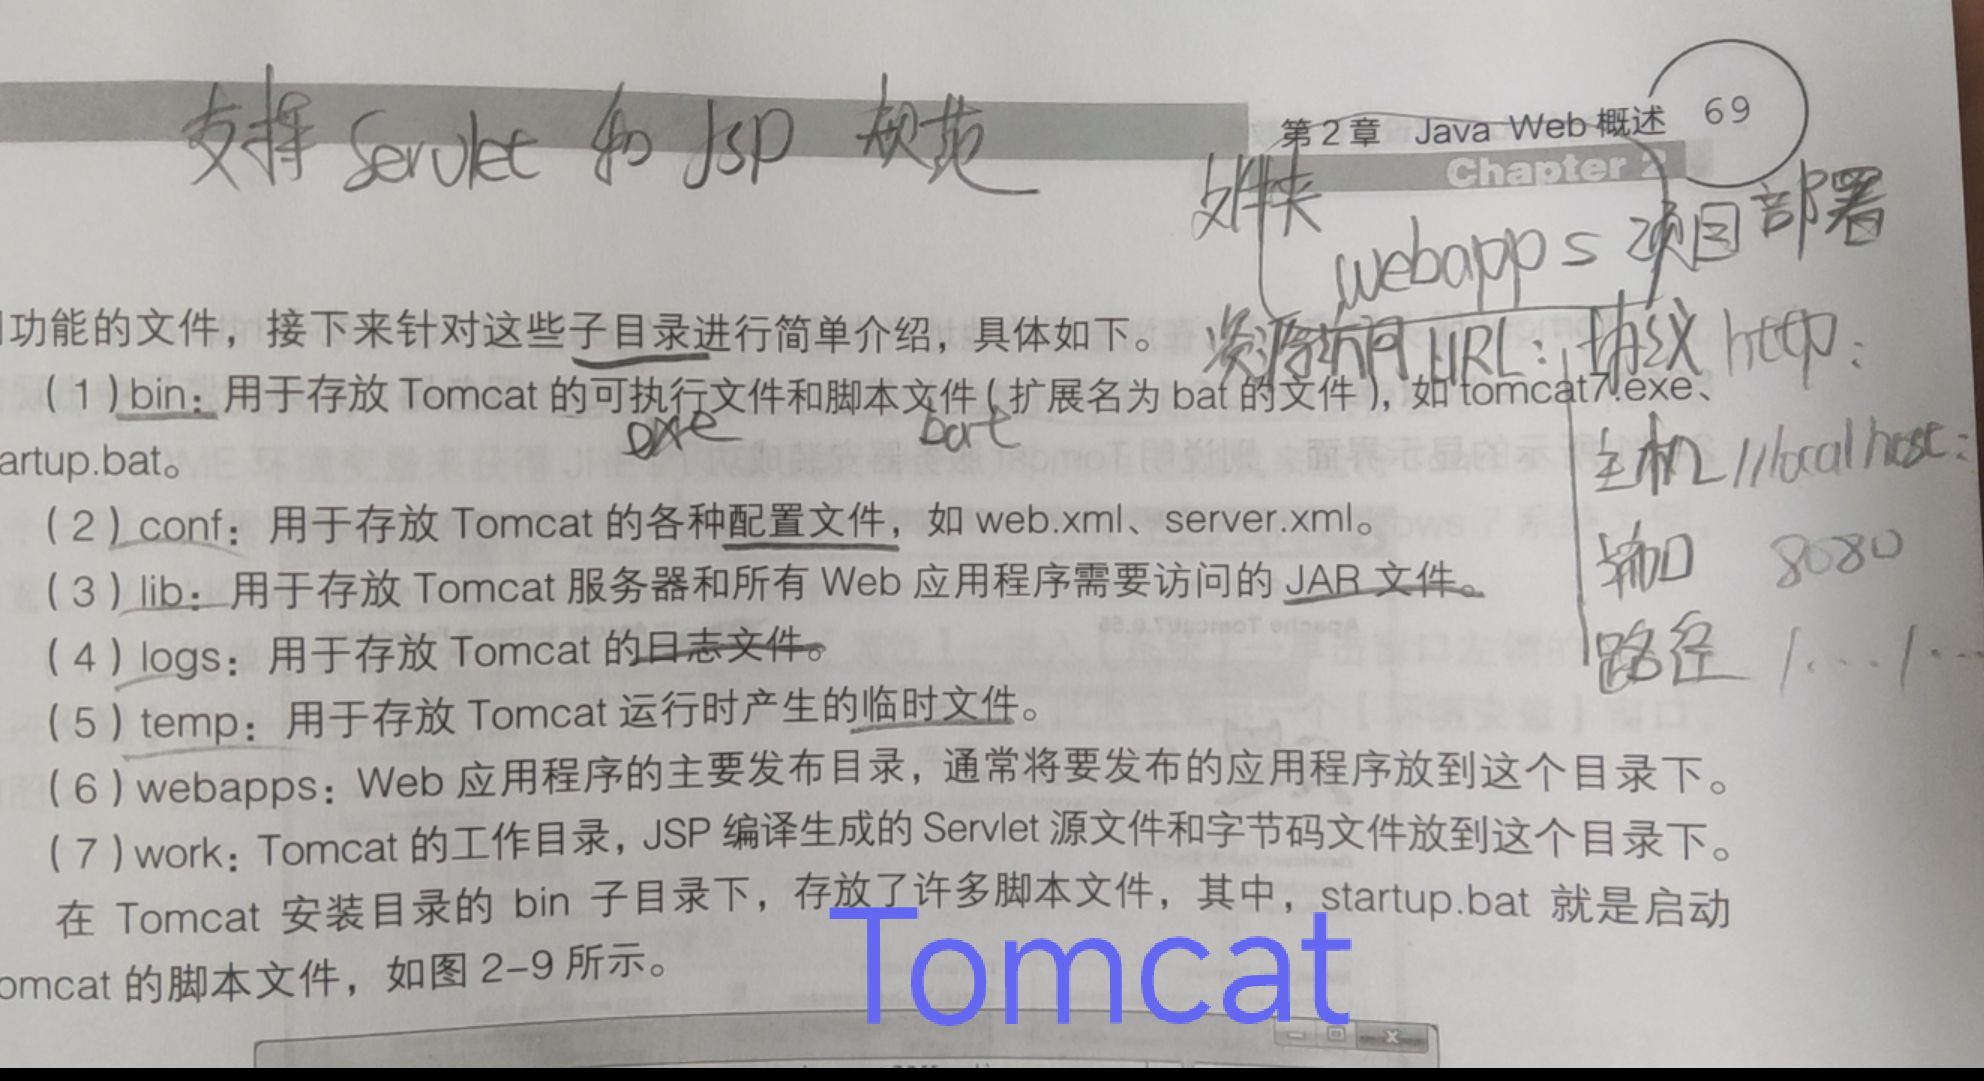 支持 Servlet 和 JSP 规范
第2章 Java Web 概述 69
Chapter 2
文件夹
webapps 项目部署
资源访问 URL: 协议 http:
主机 //localhost:
端口 8080
路径 /..../...
功能的文件，接下来针对这些子目录进行简单介绍，具体如下。
(1) bin：用于存放 Tomcat 的可执行文件和脚本文件（扩展名为 bat 的文件），如 tomcat7.exe、
exe bat
artup.bat。
(2) conf：用于存放 Tomcat 的各种配置文件，如 web.xml、server.xml。
(3) lib：用于存放 Tomcat 服务器和所有 Web 应用程序需要访问的 JAR 文件。
(4) logs：用于存放 Tomcat 的日志文件。
(5) temp：用于存放 Tomcat 运行时产生的临时文件。
(6) webapps：Web 应用程序的主要发布目录，通常将要发布的应用程序放到这个目录下。
(7) work：Tomcat 的工作目录，JSP 编译生成的 Servlet 源文件和字节码文件放到这个目录下。
在 Tomcat 安装目录的 bin 子目录下，存放了许多脚本文件，其中，startup.bat 就是启动
omcat 的脚本文件，如图 2-9 所示。
Tomcat